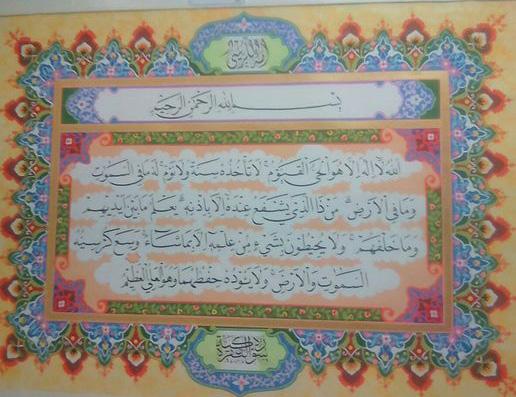 آية الكرسي
بسم الله الرحمن الرحيم
الله لا إله إلا هو الحي القيوم لا تأخذه سنة ولا نوم له ما في السموت
وما في الأرض من ذا الذي يشفع عنده إلا بإذنه يعلم ما بين أيديهم
وما خلفهم ولا يحيطون بشيء من علمه إلا بما شاء وسع كرسيه
السموت والأرض ولا يئوده حفظهما وهو العلي العظيم
سورة البقرة